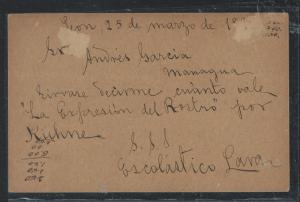 Leon 25 de marzo de 18
Sr Andrés Garcia
Managua
Sirvase decirme cuánto vale
"La Expresión del Rostro" por
Kuhne.
S. S. S
Escolástico Lara